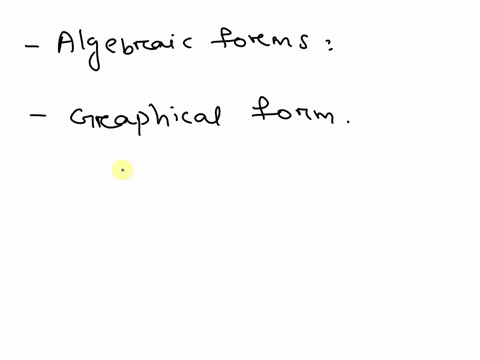 - Algebraic forms :
- Graphical form .